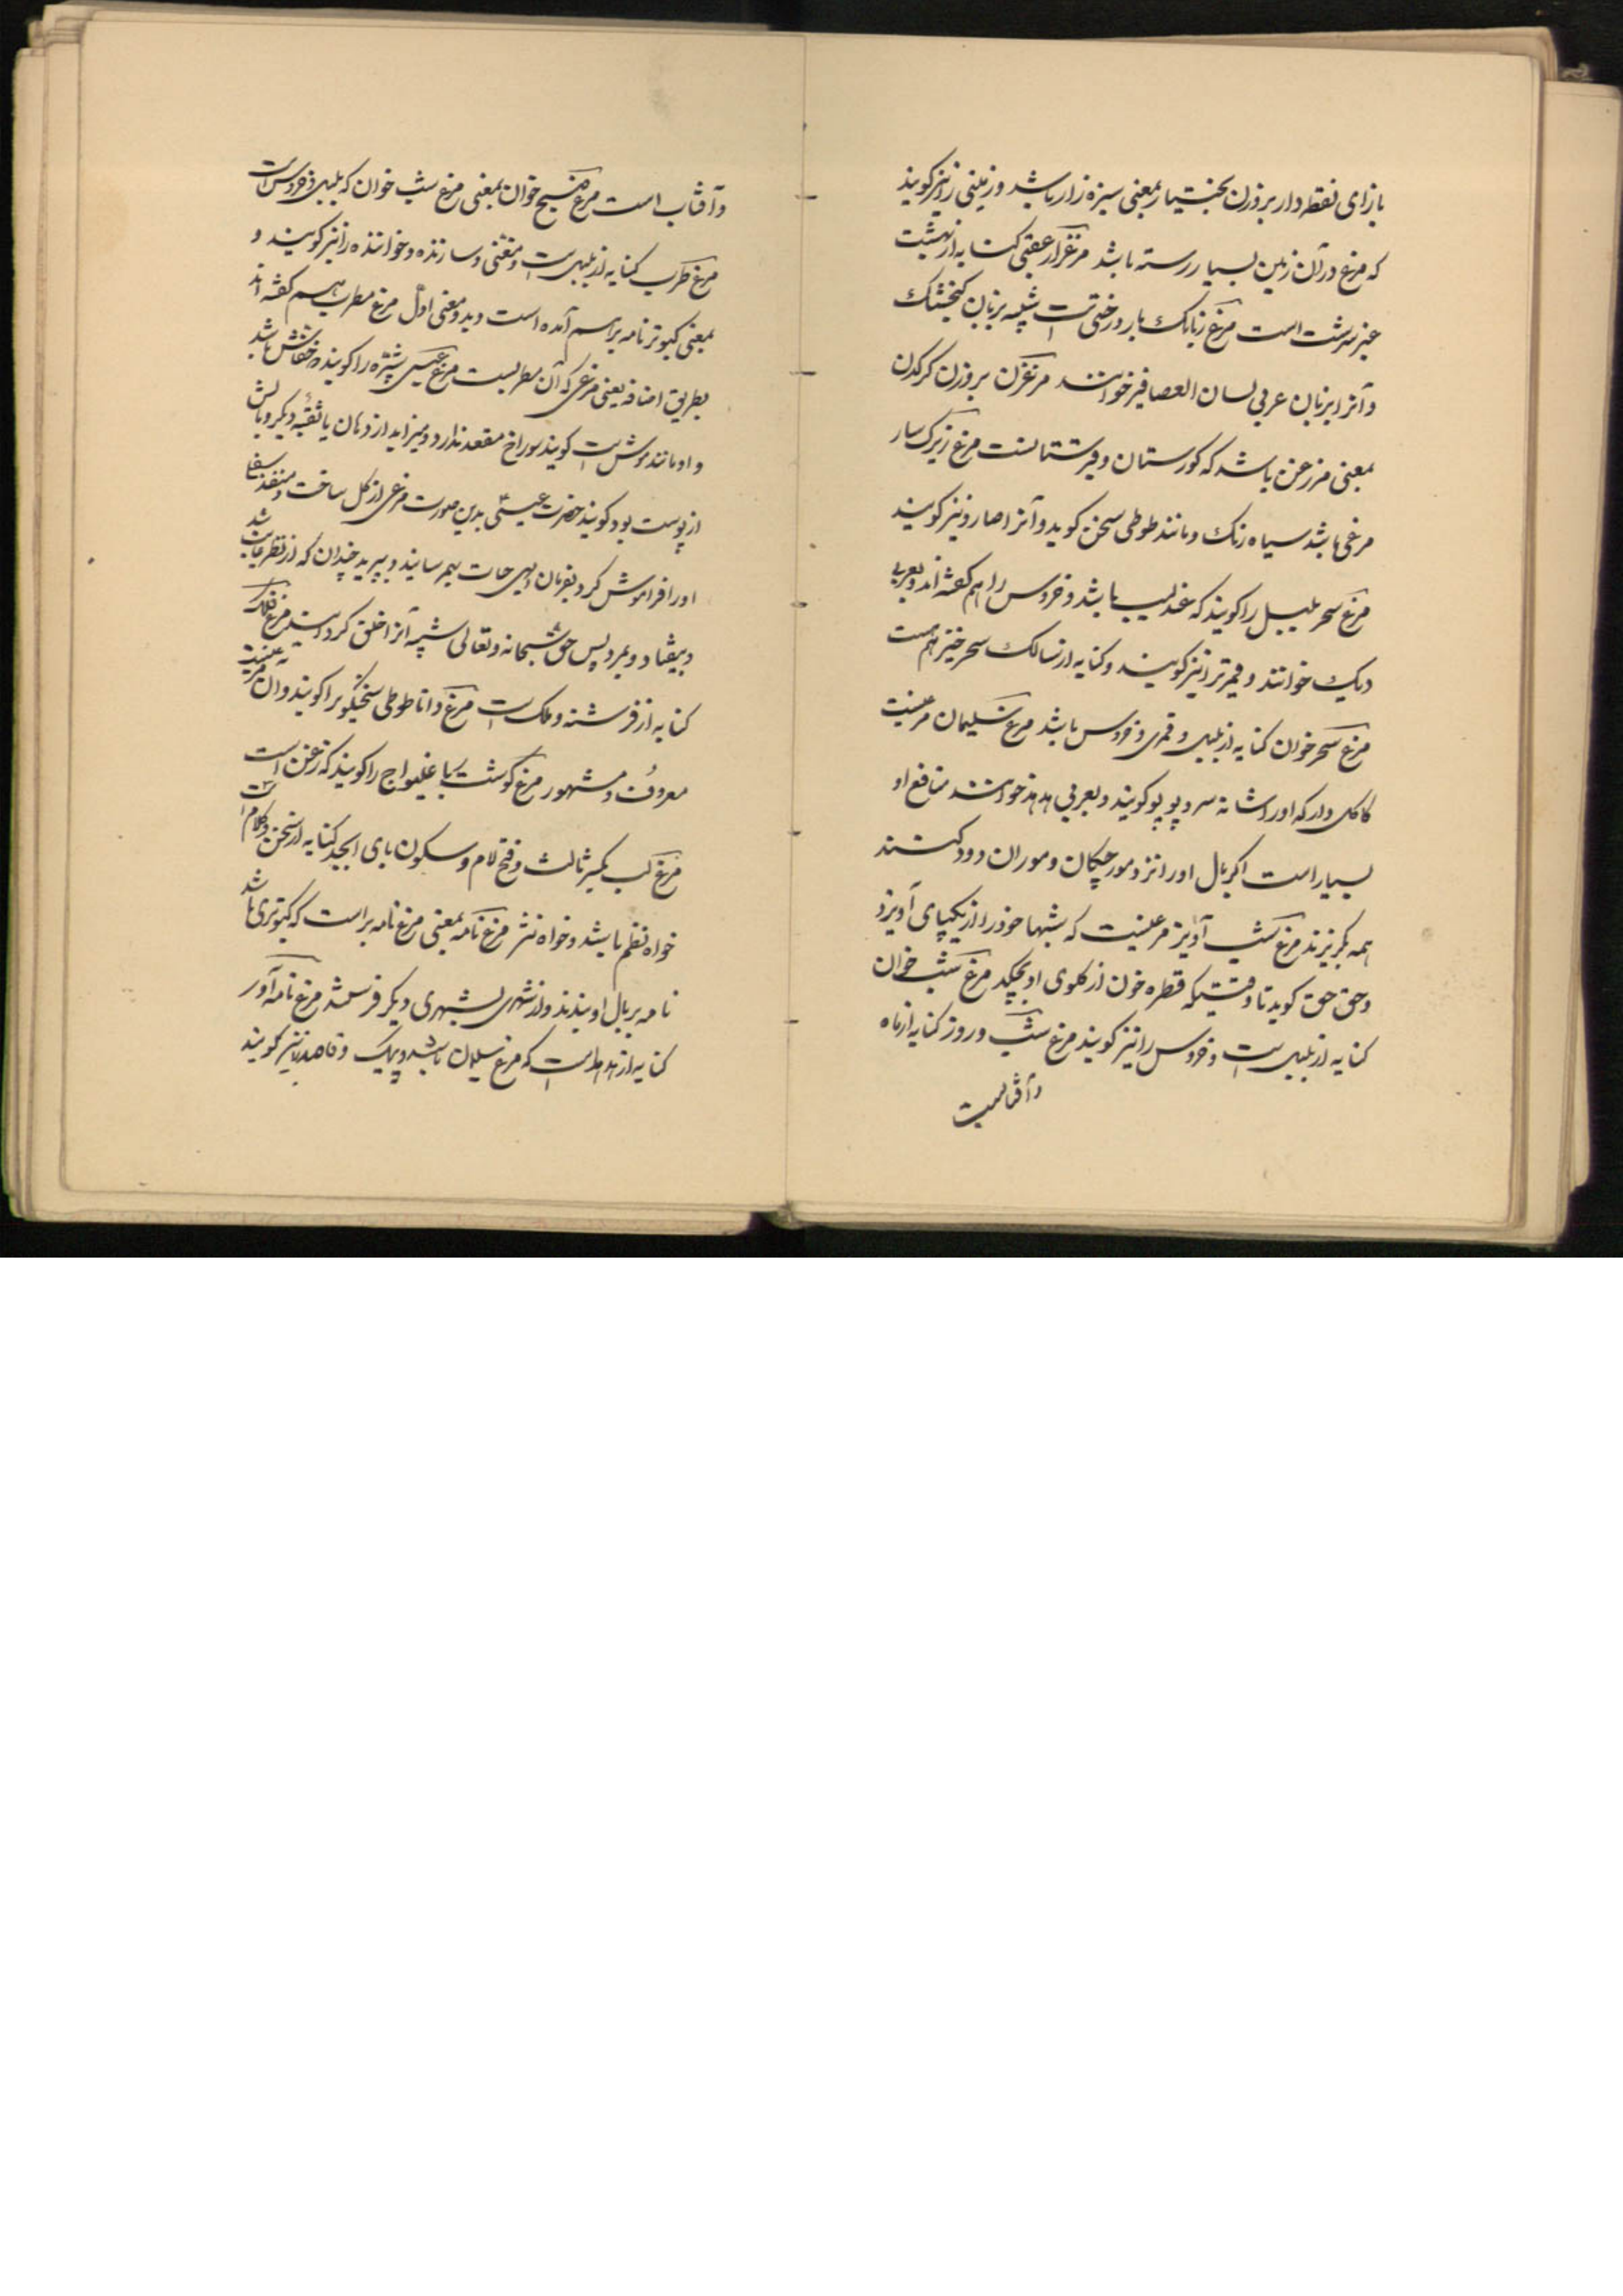 بازای نقطه دار بروزن بختیار بمعنی سبزه زار باشد و زمینی را نیز کویند
که مرغ در آن زمین بسیار رسته باشد مرغزار عقبی کنایه از بهشت
عنبر سرشت است مرغ زبانک بار درختی است شبیه بزبان کنجشک
و آنرا بزبان عربی لسان العصافیر خوانند مرغزن بروزن کرکدن
بمعنی مرزغن باشد که کورستان و قبرستانست مرغ زیرک سار
مرغی باشد سیاه رنک و مانند طوطی سخن کوید و آنرا سارو نیز کویند
مرغ سحر بلبل را کویند که عندلیب باشد و خروس را هم کفته اند و بعربی
دیک خوانند و قمری را نیز کویند و کنایه از سالک سحر خیز هم هست
مرغ سحر خوان کنایه از بلبل و قمری و خروس باشد مرغ سلیمان مرغیست
کاکل دار که او را شانه سر و پوپو کویند و بعربی هدهد خوانند منافع او
بسیار است اکر بال او را نزد مورچکان و موران دود کنند
همه بکریزند مرغ شب آویز مرغیست که شبها خود را از یکپای آویزد
و حق حق کوید تا وقتیکه قطره خون از کلوی او بچکد مرغ شب خوان
کنایه از بلبل است و خروس را نیز کویند مرغ شب و روز کنایه از ماه
و آفتابست
و آفتاب است مرغ صبح خوان بمعنی مرغ شب خوان که بلبل و خروس است
مرغ طرب کنایه از بلبل است و مغنی و سازنده و خواننده را نیز کویند و
بمعنی کبوتر نامه بر هم آمده است و بدو معنی اول مرغ مطرب هم کفته اند
بطریق اضافه یعنی مرغی که آن مطربست مرغ عیسی شپره را کویند که خفاش باشد
و او مانند موش است کویند سوراخ مقعد ندارد و میزاید از دهان یا ثقبه دیکر و بالش
از پوست بود کویند حضرت عیسی بدین صورت مرغی از کل ساخت و منفذ سفل
او را فراموش کرد بفرمان الهی حیات بهم رسانید و بپرید چندان که از نظر غایب شد
و بیفتاد و بمرد پس حق سبحانه و تعالی شبیه آنرا خلق کرد مرغ فلک
کنایه از فرشته و ملک است مرغ دانا طوطی سخنکو را کویند و آن مرغیست
معروف و مشهور مرغ کوشت ربا غلیواج را کویند که زغن است
مرغ لب بکسر ثالث و فتح لام و سکون بای ابجد کنایه از سخن و کلام است
خواه نظم باشد و خواه نثر مرغ نامه بمعنی مرغ نامه بر است که کبوتری باشد
نامه بر بال او بندند و از شهری بشهری دیکر فرستند مرغ نامه آور
کنایه از هدهد است که مرغ سلیمان باشد و پیک و قاصد را نیز کویند